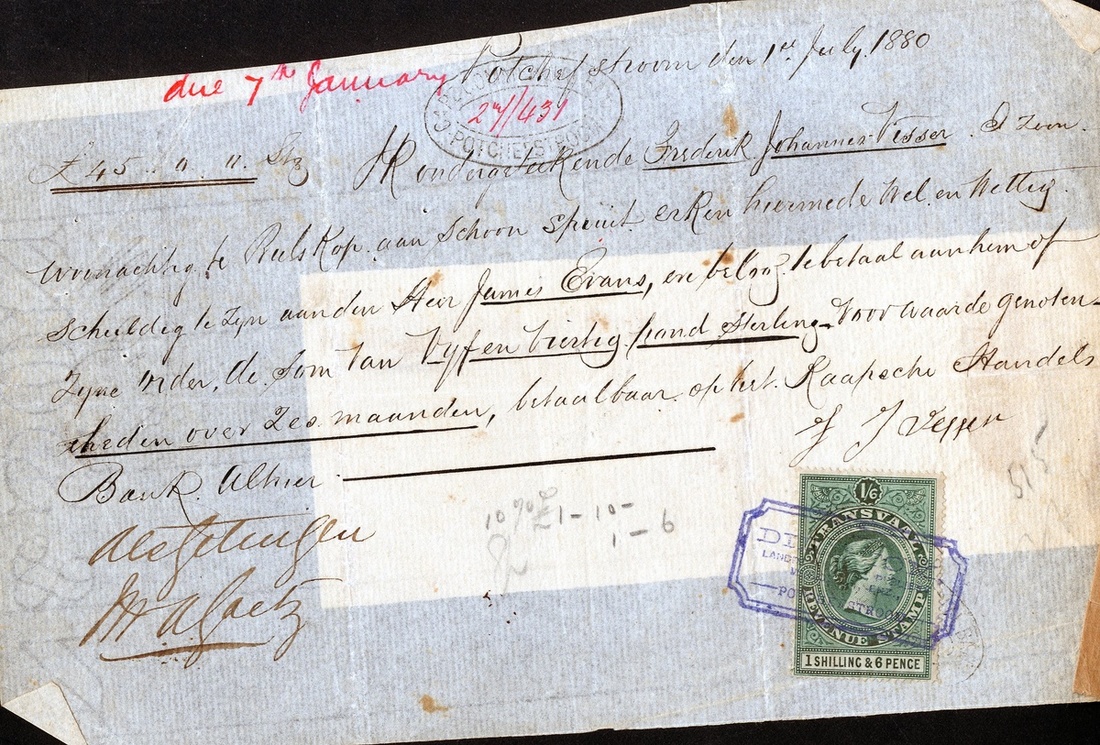 due 7th January
Potchefstroom den 1st July 1880
POTCHEFSTROOM
£45 " " Stg
Ik ondergeteekende Frederik Johannes Visser
woonachtig te Buls Kop aan Schoon Spruit erken hiermede Wel en Wettig
Schuldig te Zyn aan den Heer James Evans, en beloof te betaal aan hem of
Zyne order, de Som van Vyf en Viertig pond Sterling Voor waarde genoten
heden over Zes maanden, betaalbaar op het Kaapsche Handels
Bank Alhier
F J Visser
515
10% £1-10-
1-6
1/6
TRANSVAAL
REVENUE STAMP
1 SHILLING & 6 PENCE